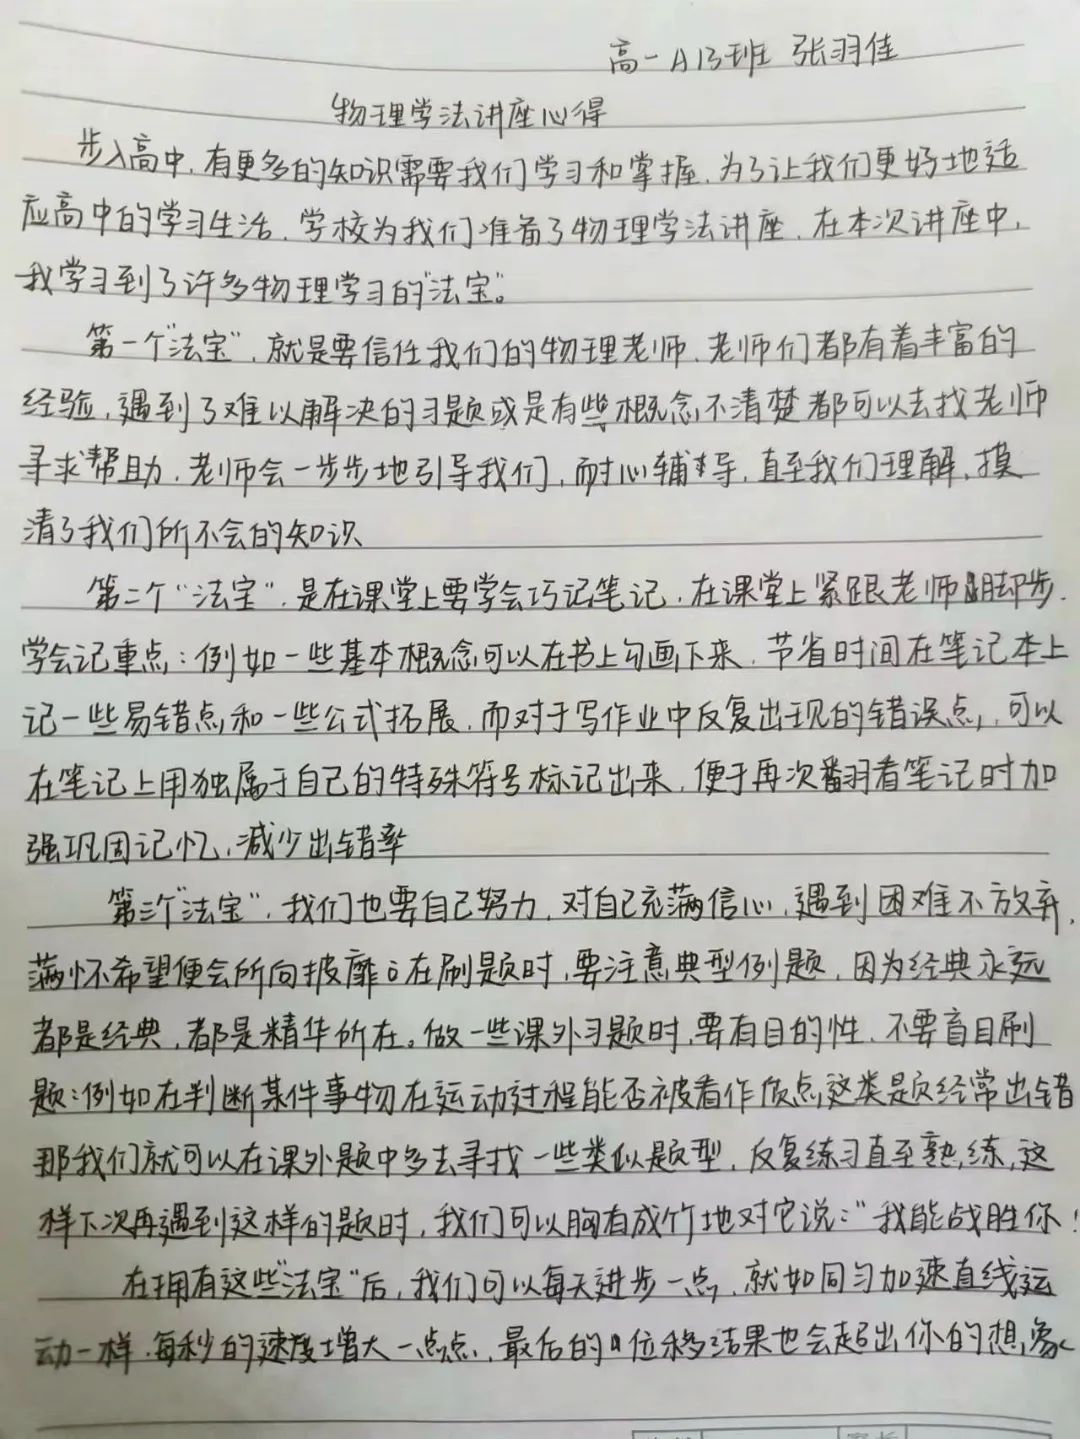 高一A13班 张羽佳
物理学法讲座心得
步入高中,有更多的知识需要我们学习和掌握,为了让我们更好地适
应高中的学习生活,学校为我们准备了物理学法讲座,在本次讲座中,
我学习到了许多物理学习的"法宝"。
第一个"法宝",就是要信任我们的物理老师,老师们都有着丰富的
经验,遇到了难以解决的习题或是有些概念不清楚都可以去找老师
寻求帮助,老师会一步步地引导我们,耐心辅导,直至我们理解,摸
清了我们所不会的知识
第二个"法宝",是在课堂上要学会巧记笔记,在课堂上紧跟老师脚步,
学会记重点:例如一些基本概念可以在书上勾画下来,节省时间在笔记本上
记一些易错点和一些公式拓展,而对于写作业中反复出现的错误点,可以
在笔记上用独属于自己的特殊符号标记出来,便于再次翻看笔记时加
强巩固记忆,减少出错率
第三个"法宝",我们也要自己努力,对自己充满信心,遇到困难不放弃,
满怀希望便会所向披靡。在刷题时,要注意典型例题,因为经典永远
都是经典,都是精华所在。做一些课外习题时,要有目的性,不要盲目刷
题:例如在判断某件事物在运动过程能否被看作质点这类题经常出错
那我们就可以在课外题中多去寻找一些类似题型,反复练习直至熟练,这
样下次再遇到这样的题时,我们可以胸有成竹地对它说:"我能战胜你!
在拥有这些"法宝"后,我们可以每天进步一点,就如同匀加速直线运
动一样,每秒的速度增大一点点,最后的位移结果也会超出你的想象